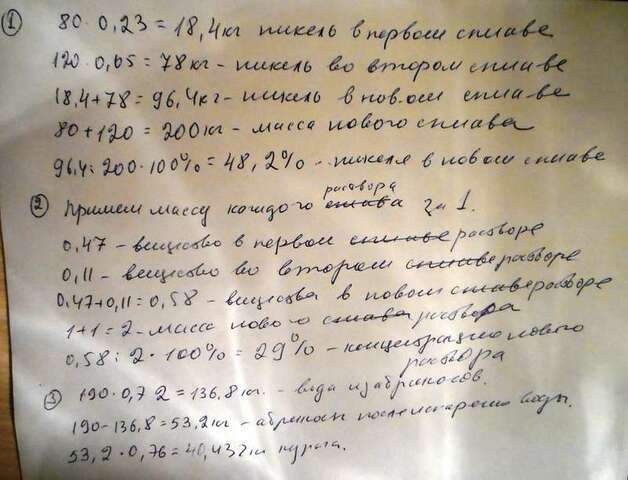 ① 80·0,23 = 18,4кг никель в первом сплаве
120·0,65 = 78кг - никель во втором сплаве
18,4+78 = 96,4кг - никель в новом сплаве
80+120 = 200кг - масса нового сплава
96,4:200·100% = 48,2% - никеля в новом сплаве
② Примем массу каждого раствора за 1.
0,47 - вещество в первом растворе
0,11 - вещество во втором растворе
0,47+0,11=0,58 - вещества в новом растворе
1+1=2 - масса нового раствора
0,58:2·100% = 29% - концентрацию нового
раствора
③ 190·0,72=136,8кг. - вода из абрикосов.
190-136,8=53,2кг - абрикос после испарению воды.
53,2·0,76=40,432кг курага.